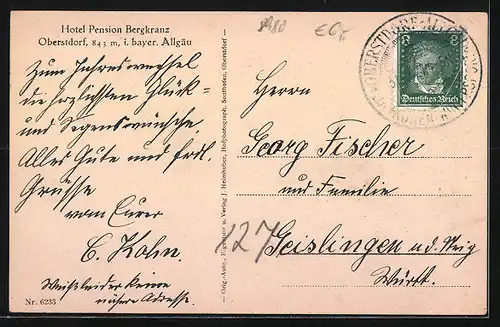 Hotel Pension Bergkranz
Oberstdorf, 843 m, i. bayer. Allgäu
Zum Jahreswechsel
die herzlichsten Glück-
und Segenswünsche.
Alles Gute und
Grüsse
vom Eurer
E. Kohn
Weiß leider keine
nähere Adresse.
Nr. 6233
Orig.-Aufn., Eigentum u. Verlag J. Heimhuber, Hofphotograph, Sonthofen, Oberstdorf
OBERSTDORF
Deutsches Reich
8
Herrn
Georg Fischer
und Familie
x27
Geislingen a.d. Steig
Württ.